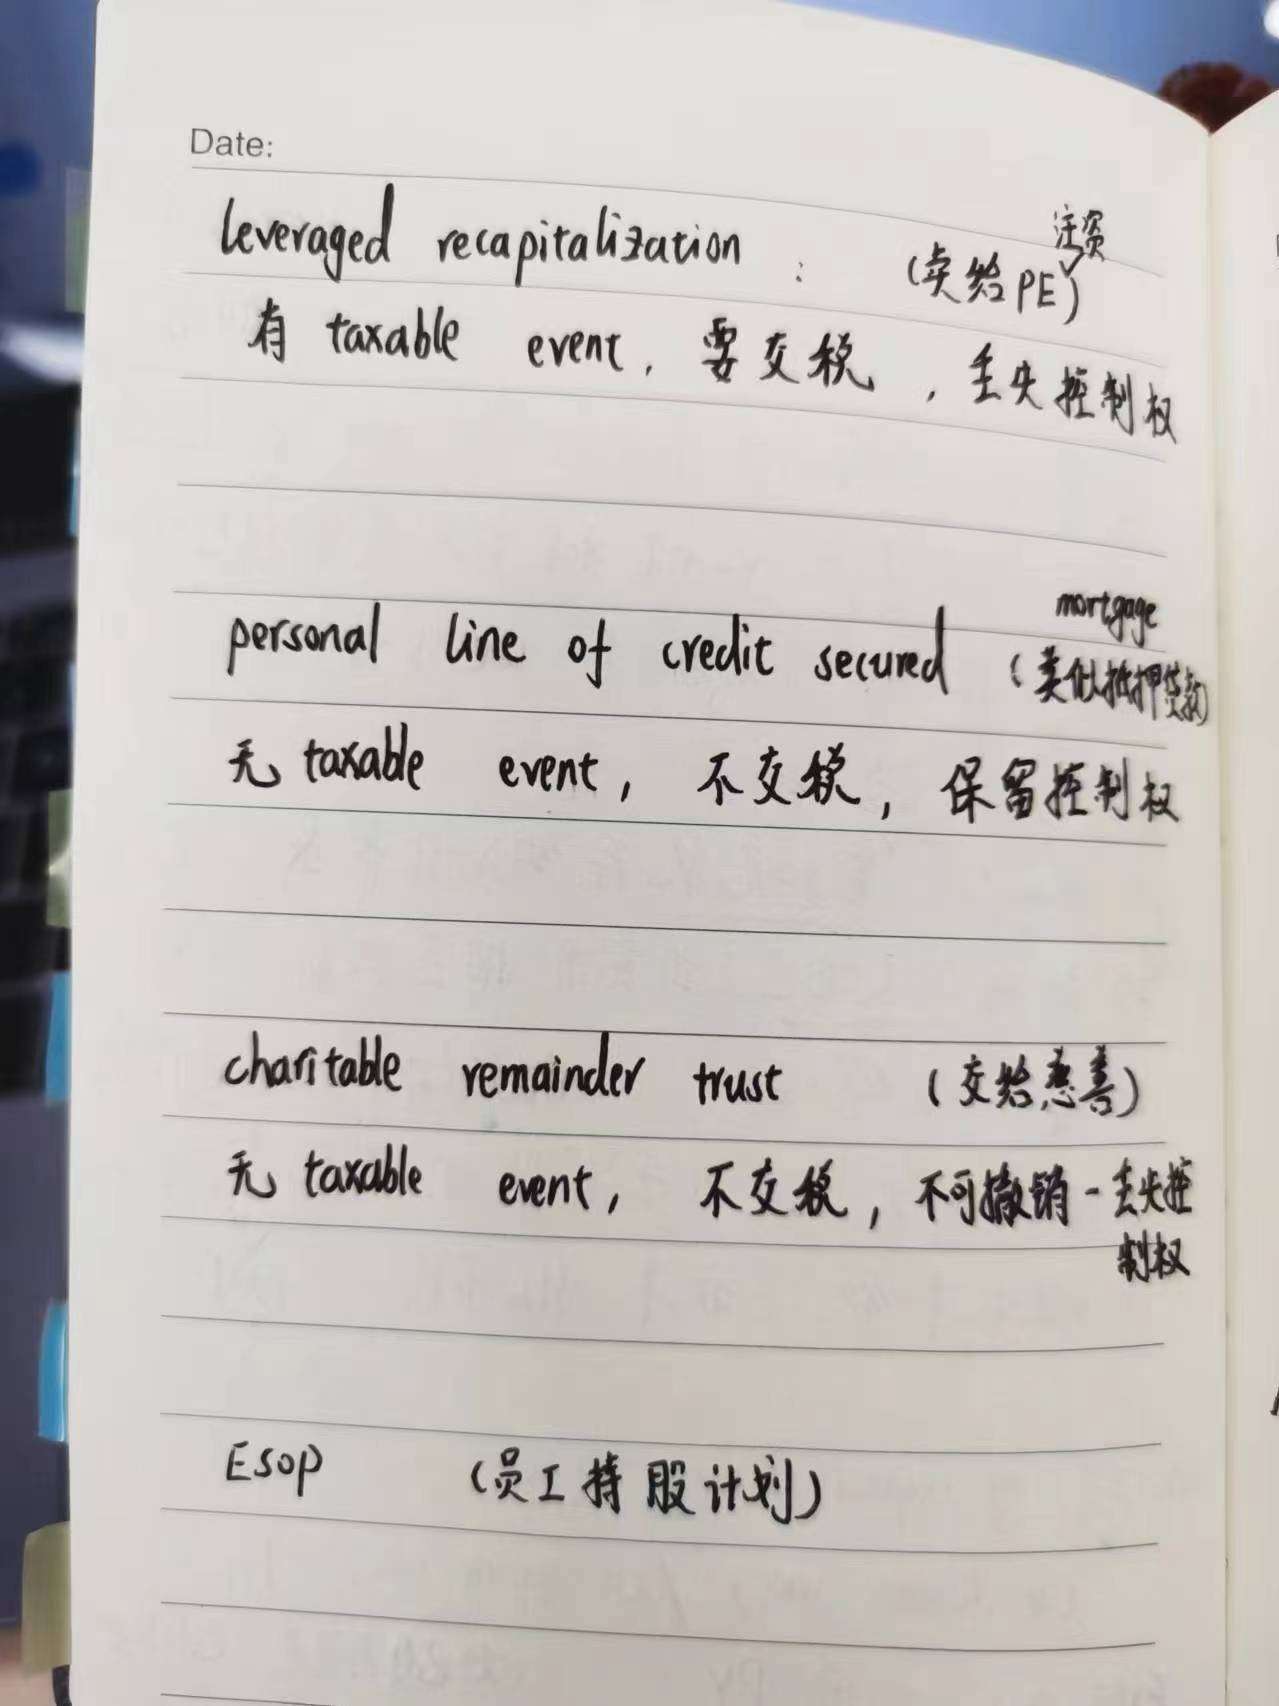 Date:
注资
leveraged recapitalization : (卖给PE)
有 taxable event, 要交税, 丢失控制权
mortgage
personal line of credit secured (类似抵押贷款)
无 taxable event, 不交税, 保留控制权
charitable remainder trust (交给慈善)
无 taxable event, 不交税, 不可撤销-丢失控
制权
ESOP (员工持股计划)